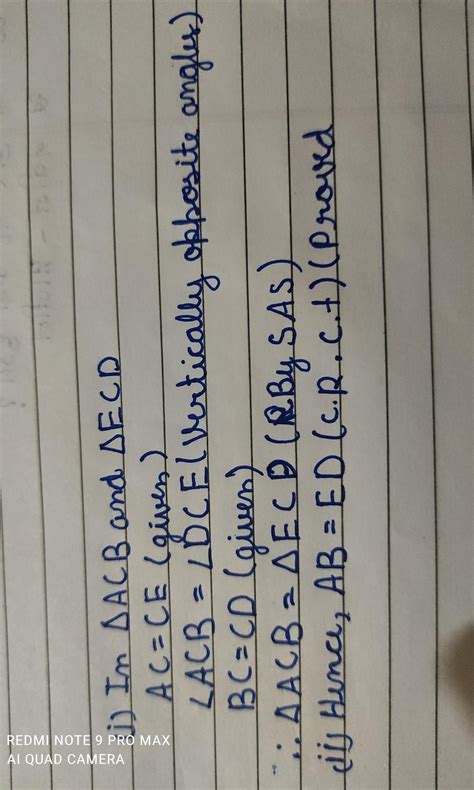 i) In ΔACB and ΔECD
AC = CE (given)
∠ACB = ∠DCE (Vertically opposite angles)
BC = CD (given)
∴ ΔACB = ΔECD (R By SAS)
(ii) Hence, AB = ED (C.P.C.t) (Proved
REDMI NOTE 9 PRO MAX
AI QUAD CAMERA